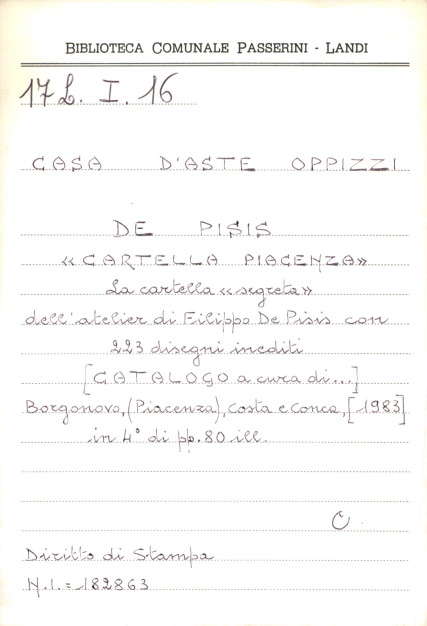 BIBLIOTECA COMUNALE PASSERINI - LANDI
17 L. I. 16
CASA D'ASTE OPPIZZI
DE PISIS
«CARTELLA PIACENZA»
La cartella «segreta»
dell'atelier di Filippo De Pisis con
223 disegni inediti
[CATALOGO a cura di...]
Borgonovo, (Piacenza), Costa e Conca, [1983]
in 4° di pp. 80 ill.
C
Diritto di Stampa
N.I. = 182863